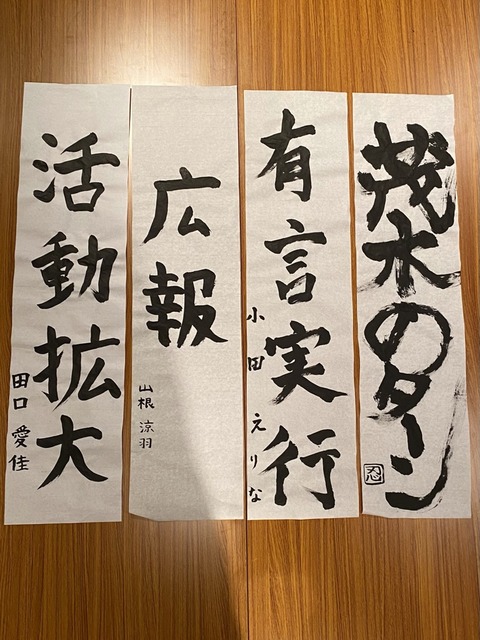 茂木のターン
忍
有言実行
小田えりな
広報
山根涼羽
活動拡大
田口愛佳